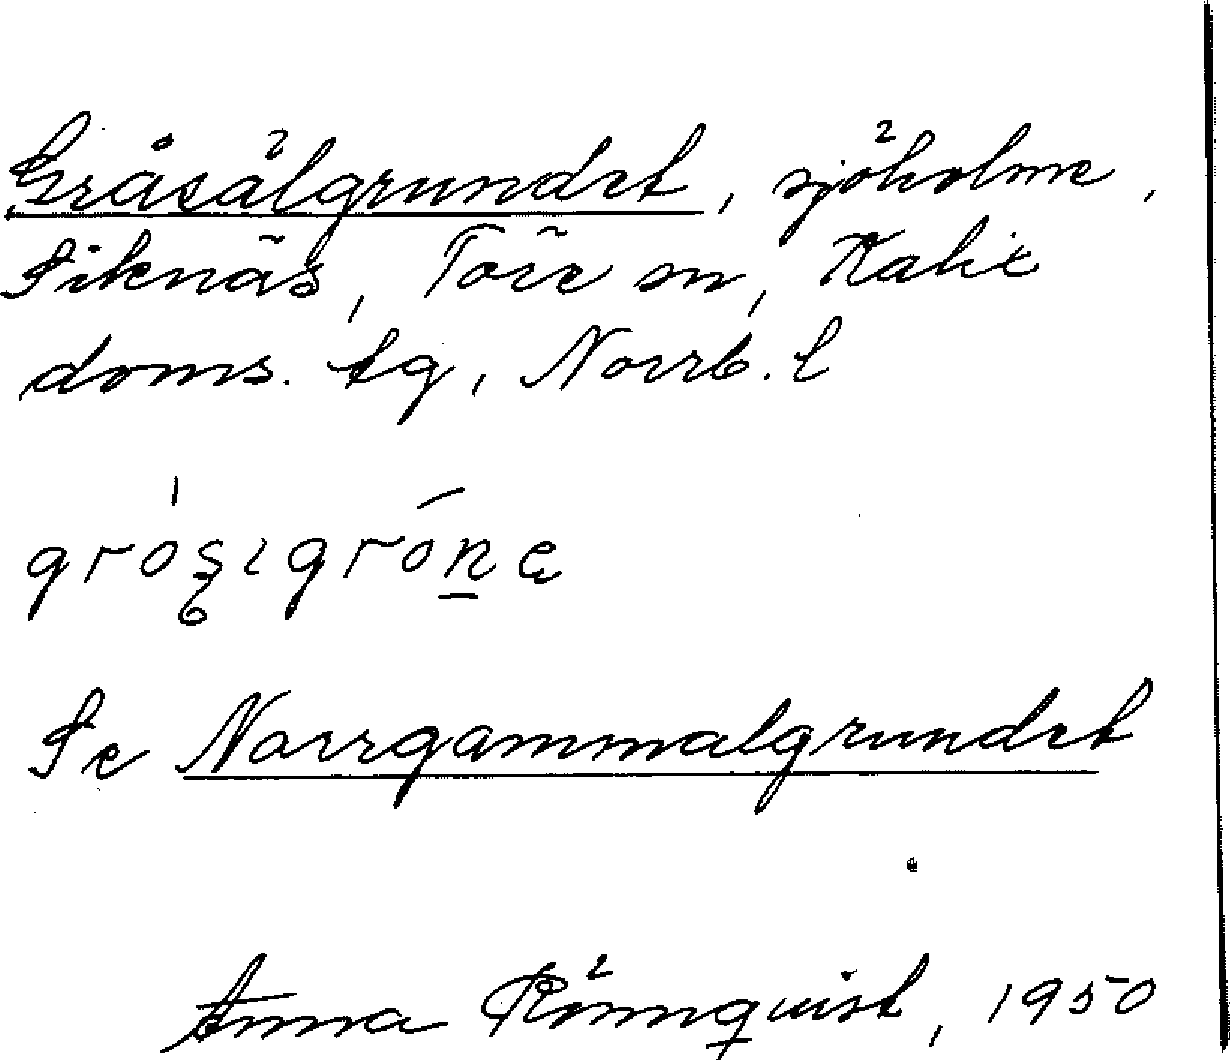 Gråsälgrundet, sjöholme,
Siknäs, Töre sn, Kalix
doms. tg, Norrb. l
Se Norrgammalgrundet
Anna Rönnquist, 1950